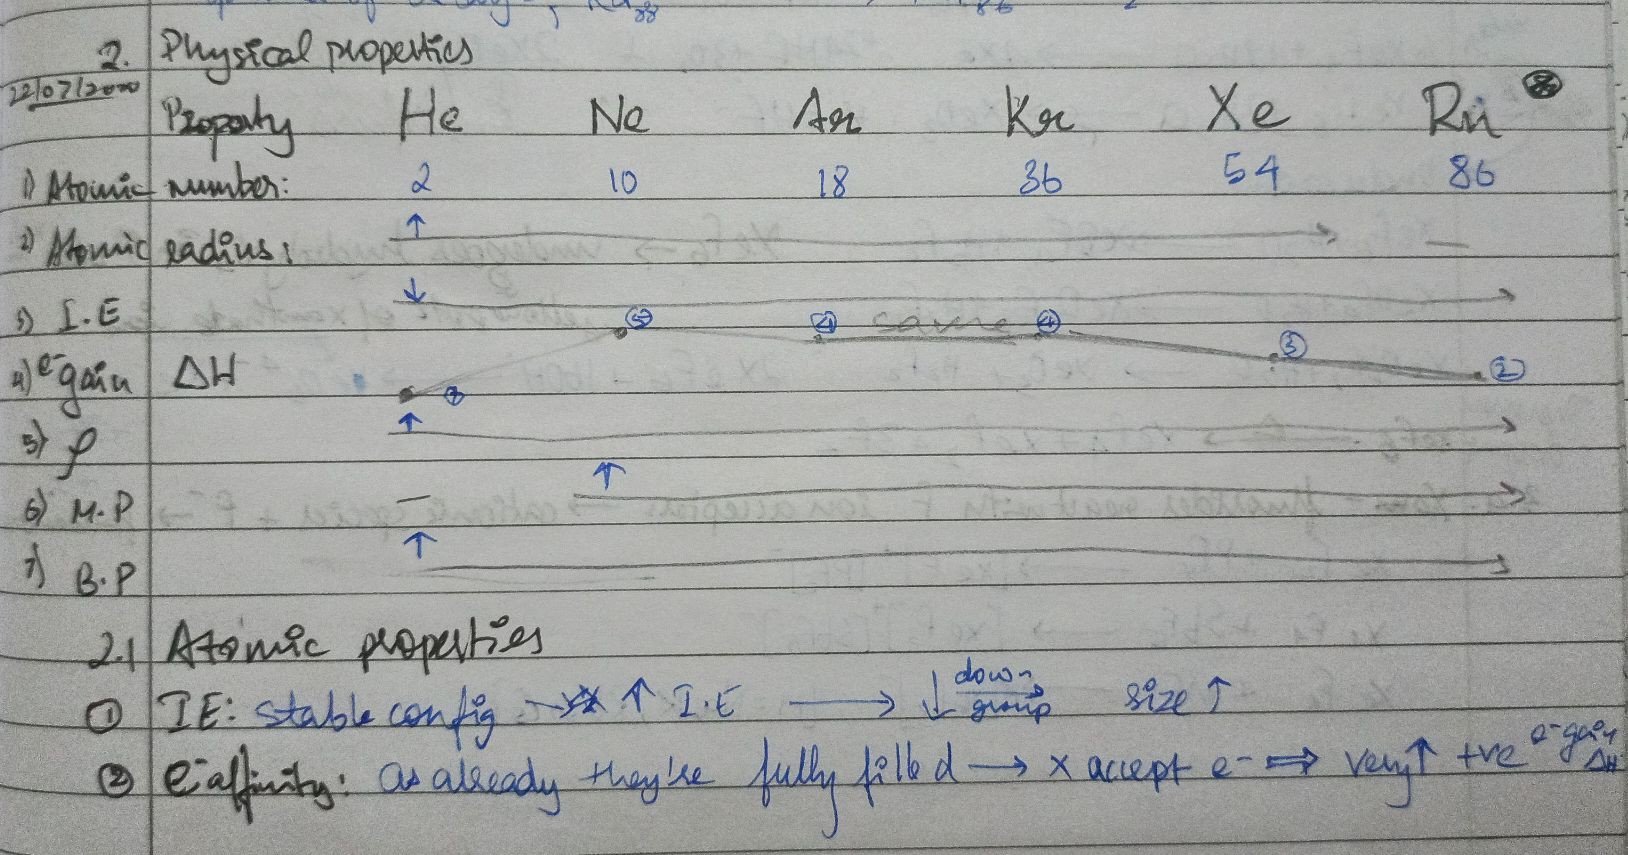 2. Physical properties
22/07/2020
Property He Ne Ar Kr Xe Rn
1) Atomic number: 2 10 18 36 54 86
2) Atomic radius: ↑ → —
3) I.E ↓ →
4) e⁻ gain ΔH ⑤ ④ same ④ ③ ②
5) ρ ↑ →
6) M.P — ↑ →
7) B.P ↑ →
2.1 Atomic properties
① IE: stable config → ↑ I.E → ↓ down group size ↑
② e⁻affinity: as already they're fully filled → x accept e⁻ ⇒ very↑ +ve e⁻gain ΔH